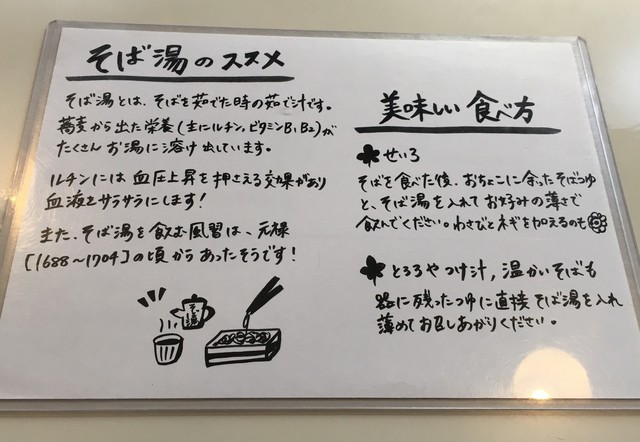 そば湯のススメ
そば湯とは、そばを茹でた時の茹で汁です。
蕎麦から出た栄養(主にルチン,ビタミンB₁,B₂)が
たくさんお湯に溶け出しています。
ルチンには血圧上昇を押さえる効果があり
血液をサラサラにします!
また、そば湯を飲む風習は、元禄
[1688〜1704]の頃からあったそうです!
そば湯
美味しい食べ方
せいろ
そばを食べた後、おちょこに余ったそばつゆ
と、そば湯を入れてお好みの薄さで
飲んでください。わさびとネギを加えるのも
とろろやつけ汁,温かいそばも
器に残ったつゆに直接そば湯を入れ
薄めてお召しあがりください。